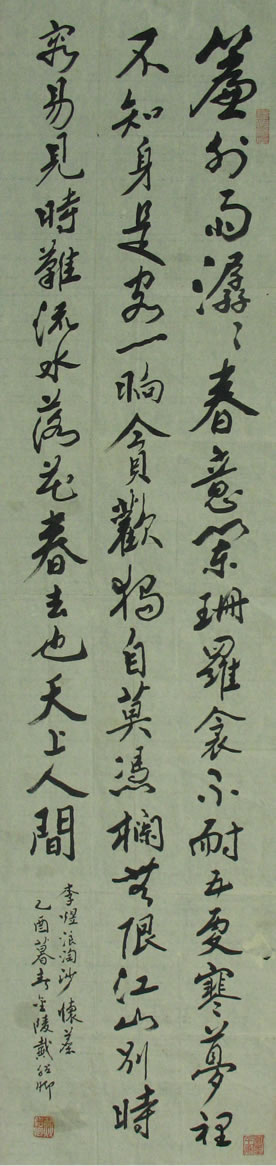 簾外雨潺々春意闌珊羅衾不耐五更寒夢裡
不知身是客一晌貪歡獨自莫憑欄無限江山別時
容易見時難流水落花春去也天上人間
李煜浪淘沙懷
乙酉暮春金陵戴